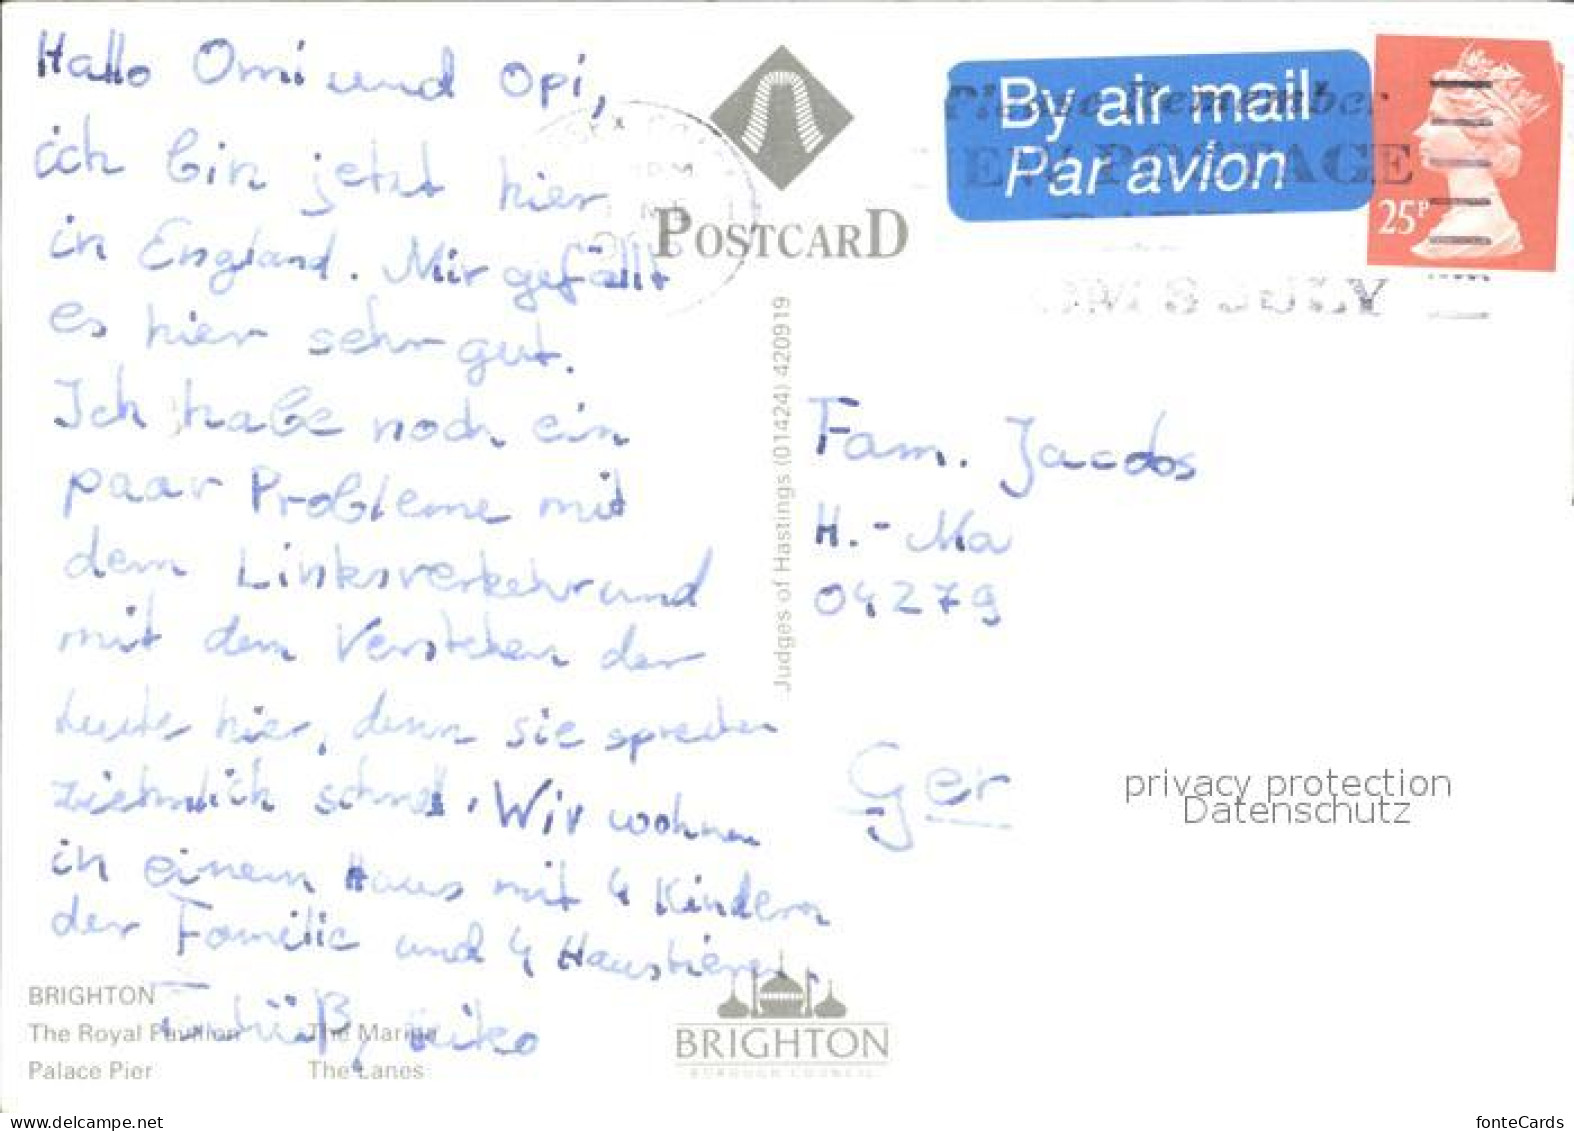 Hallo Omi und Opi,
ich bin jetzt hier
in England. Mir gefällt
es hier sehr gut.
Ich habe noch ein
paar Probleme mit
dem Linksverkehr und
mit dem Verstehen der
Leute hier, denn sie sprechen
ziehmlich schnell. Wir wohnen
in einem Haus mit 4 Kindern
der Familie und 4 Haustieren.
Tschüß, Heiko
BRIGHTON
The Royal Pavilion The Marina
Palace Pier The Lanes
POSTCARD
Judges of Hastings (01424) 420919
BRIGHTON
BOROUGH COUNCIL
By air mail
Par avion
25P
Please Remember
NEW POSTAGE
ON 8 JULY
Fam. Jacobs
H.-Ma
04279
Ger
privacy protection
Datenschutz
www.delcampe.net
fonteCards